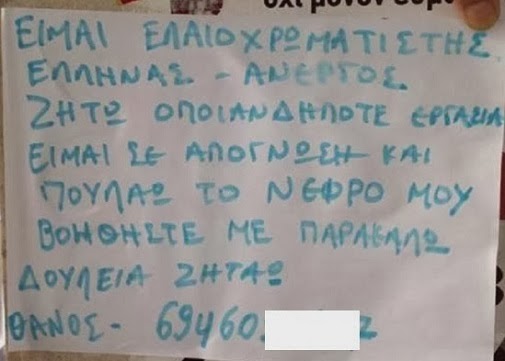 ΕΙΜΑΙ ΕΛΑΙΟΧΡΩΜΑΤΙΣΤΗΣ
ΕΛΛΗΝΑΣ - ΑΝΕΡΓΟΣ
ΖΗΤΩ ΟΠΟΙΑΝΔΗΠΟΤΕ ΕΡΓΑΣΙΑ
ΕΙΜΑΙ ΣΕ ΑΠΟΓΝΩΣΗ ΚΑΙ
ΠΟΥΛΑΩ ΤΟ ΝΕΦΡΟ ΜΟΥ
ΒΟΗΘΗΣΤΕ ΜΕ ΠΑΡΑΚΑΛΩ
ΔΟΥΛΕΙΑ ΖΗΤΑΩ
ΘΑΝΟΣ - 69460